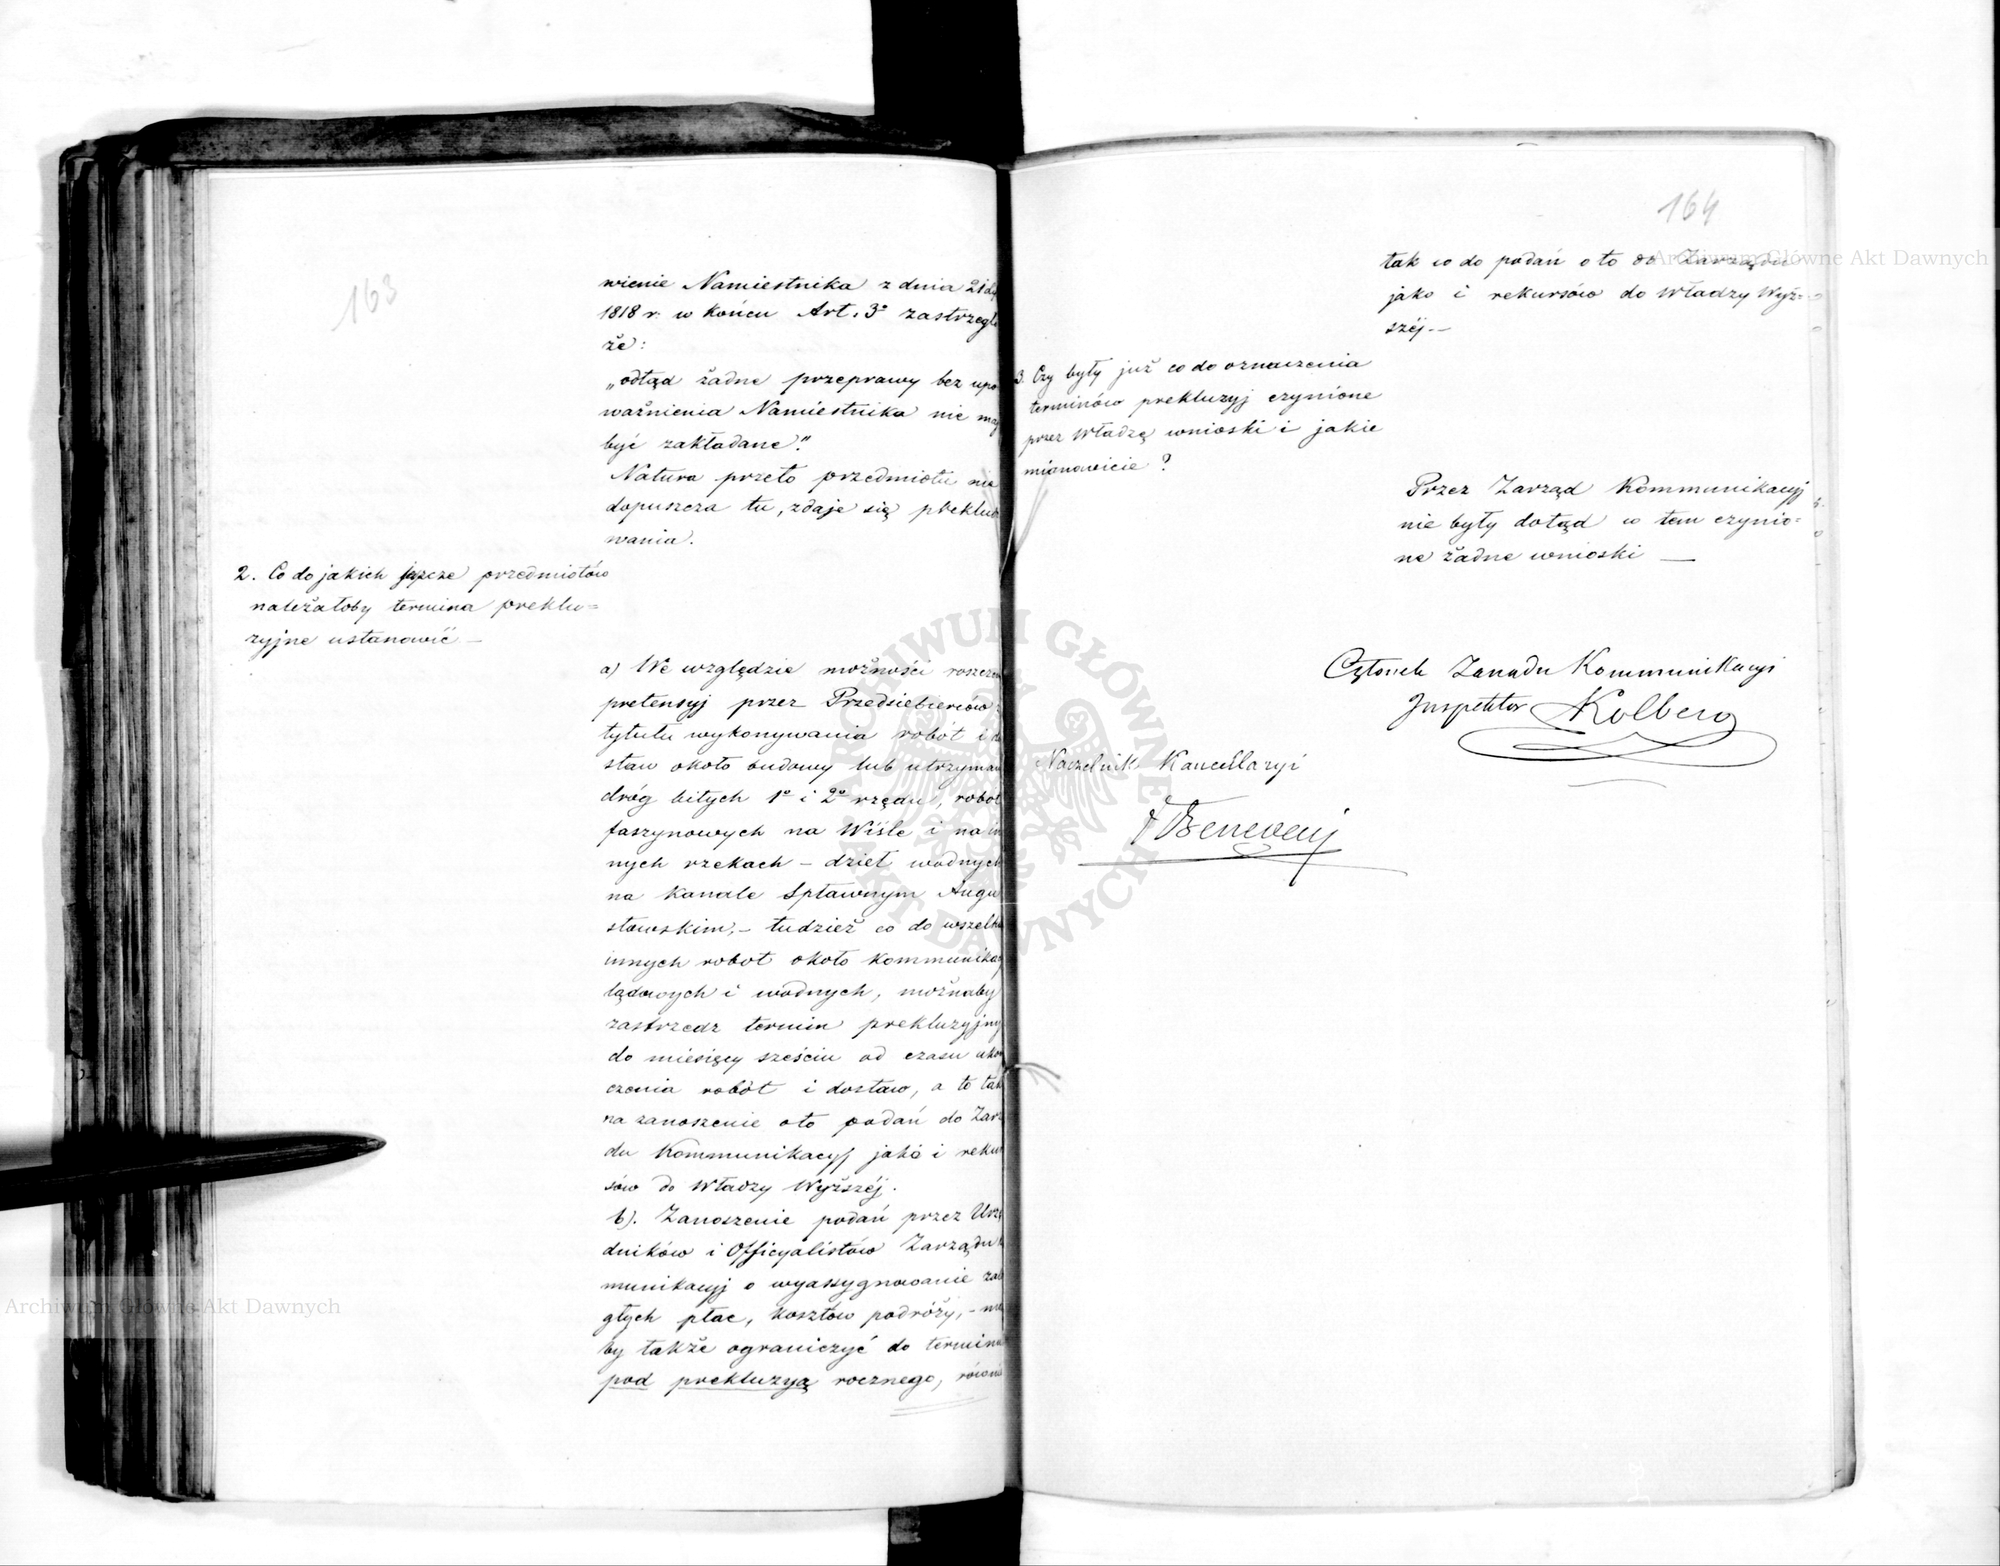 163
wienie Namiestnika z dnia 21
1818 r. w końcu Art. 3º zastrzegł
że:
„odtąd żadne przeprawy bez upo
ważnienia Namiestnika nie
być zakładane."
Natura przeto przedmiotu nie
dopuszcza tu, zdaje się preklud
wania.
2. Co do jakich jeszcze przedmiotów
należałoby termina preklu=
zyjne ustanowić —
a) We względzie możności roszczen
pretensyj przez Przedsiebierców
tytułu wykonywania robót i
staw około budowy lub utrzyman
dróg bitych 1º i 2º rzędu, robót
faszynowych na Wiśle i na in
nych rzekach – dzieł wodnych
na Kanale Spławnym Augu
stowskim, – tudzież co do wszelk
innych robot około Kommunikacy
lądowych i wodnych, możnaby
zastrzedz termin prekluzyjny
do miesięcy sześciu od czasu ukoń
czenia robót i dostaw, a to tak
na zanoszenie oto podań do Zarz
du Kommunikacyj jako i rekur
sów do Władzy Wyższéj.
b). Zanoszenie podań przez Urzę
dników i Officyalistów Zarządu
munikacyj o wyassygnowanie zale
głych płac, kosztów podróży, –
by także ograniczyć do termin
pod prekluzyą rocznego, równie
164
tak co do podań oto do Zarządu
jako i rekursów do Władzy Wyż=
széj. —
3. Czy były już co do oznaczenia
terminów prekluzyj czynione
przez Władzę wnioski i jakie
mianowicie?
Przez Zarząd Kommunikacyj
nie były dotąd w tem czynio=
ne żadne wnioski —
Członek Zarządu Kommunikacyi
Inspektor Kolberg
Naczelnik Kancellaryi
Archiwum Główne Akt Dawnych
Archiwum Główne Akt Dawnych
ARCHIWUM GŁÓWNE AKT DAWNYCH